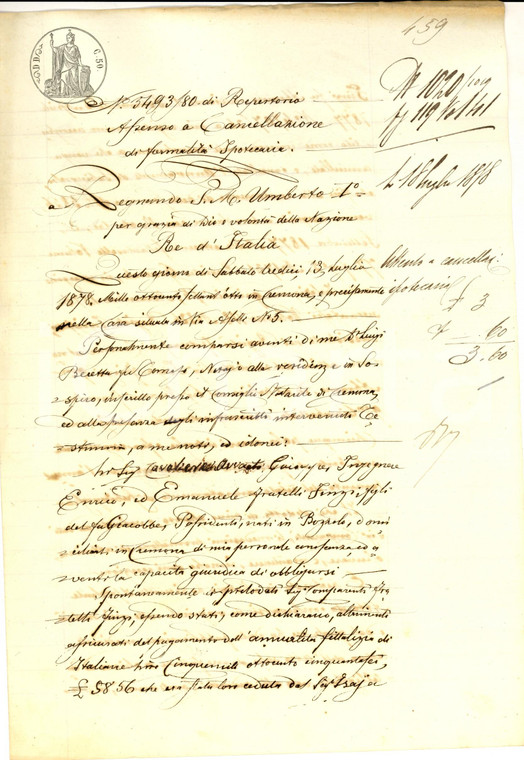 459
C. 50
N.° 5493/80 di Repertorio
Assenso a Cancellazione
di formalità Ipotecarie.
N 1020/
Regnando S. M. Umberto I°
per grazia di Dio e volontà della Nazione
Re d'Italia
18 Luglio 1878
Questo giorno di Sabbato tredici 13 Luglio
1878 Mille ottocento settant'otto in Cremona, e precisamente
nella Casa situata in Via N.° 5.
Assenso a cancellaz:
ipotecaria
£ 3
" 60
3.60
Personalmente comparsi avanti di me D.r Luigi
Beretta Notajo alla residenza in So-
spiro, inscritto presso il Consiglio Notarile di Cremona,
ed alla presenza degli infrascritti intervenuti Te-
stimonj, a me noti, ed idonei:
Li Sig. Cavaliere Avvocato Giuseppe, Ingegnere
Enrico, ed Emanuele fratelli Finzi, figli
del fu Giacobbe, Possidenti, nati in Bozzolo, domi-
ciliati in Cremona di mia personale conoscenza ed a-
venti la capacità giuridica di obbligarsi
Spontaneamente i prelodati Sig. Comparenti Fra-
telli Finzi, essendo stati, come dichiarano, altrimenti
assicurati del pagamento dell'annualità di
Italiane Lire Cinquemille ottocento cinquantasei,
£ 5856 che era stata loro ceduta dal Sig.